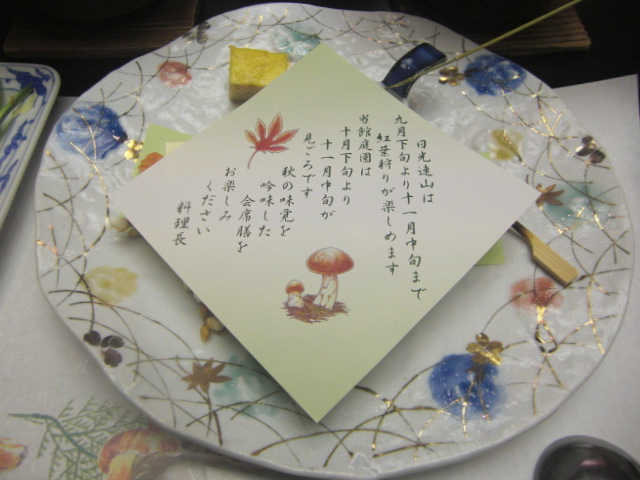 日光連山は
九月下旬より十一月中旬まで
紅葉狩りが楽しめます
当館庭園は
十月下旬より
十一月中旬が
見ごろです
秋の味覚を
吟味した
会席膳を
お楽しみ
ください
料理長